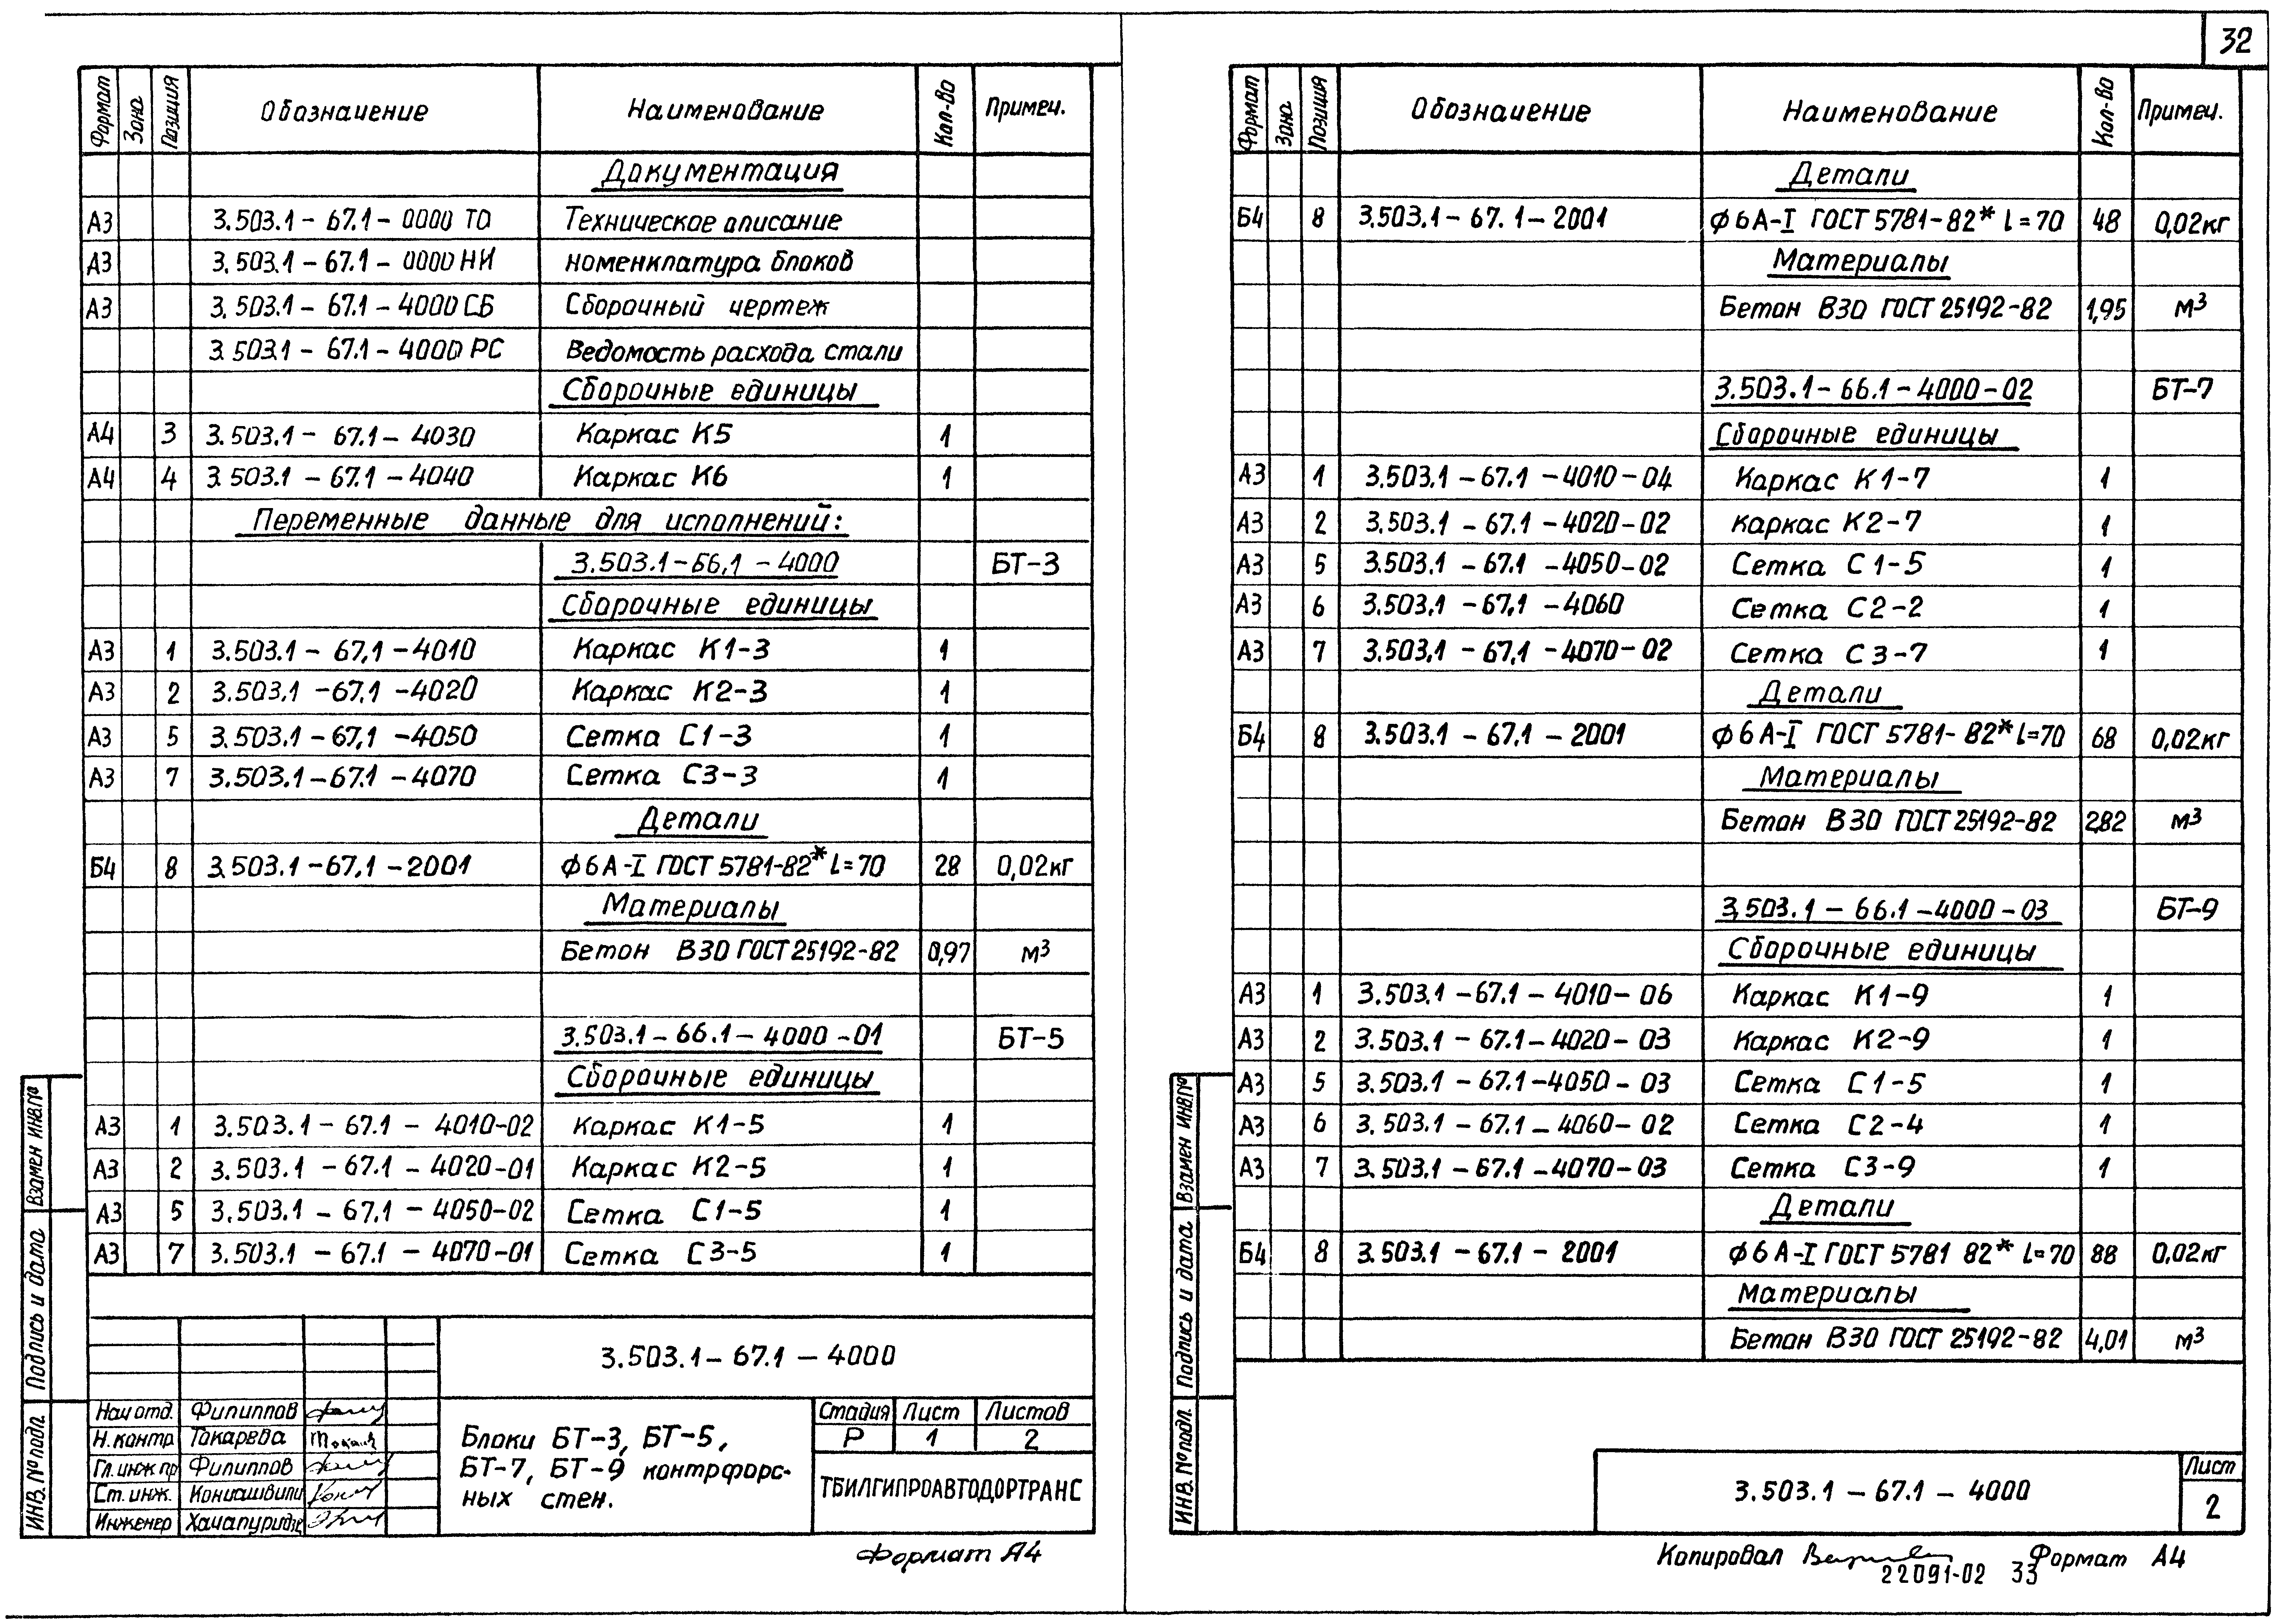 32
Формат Зона Позиция Обозначение Наименование Кол-во Примеч.
Документация
А3 3.503.1-67.1-0000 ТО Техническое описание
А3 3.503.1-67.1-0000 НИ номенклатура блоков
А3 3.503.1-67.1-4000 СБ Сборочный чертеж
3.503.1-67.1-4000 РС Ведомость расхода стали
Сборочные единицы
А4 3 3.503.1-67.1-4030 Каркас К5 1
А4 4 3.503.1-67.1-4040 Каркас К6 1
Переменные данные для исполнений:
3.503.1-66,1-4000 БТ-3
Сборочные единицы
А3 1 3.503.1-67,1-4010 Каркас К1-3 1
А3 2 3.503.1-67.1-4020 Каркас К2-3 1
А3 5 3.503.1-67,1-4050 Сетка С1-3 1
А3 7 3.503.1-67.1-4070 Сетка С3-3 1
Детали
Б4 8 3.503.1-67.1-2001 ϕ6А-I ГОСТ 5781-82* l=70 28 0,02кг
Материалы
Бетон В30 ГОСТ 25192-82 0,97 м³
3.503.1-66.1-4000-01 БТ-5
Сборочные единицы
А3 1 3.503.1-67.1-4010-02 Каркас К1-5 1
А3 2 3.503.1-67.1-4020-01 Каркас К2-5 1
А3 5 3.503.1-67.1-4050-02 Сетка С1-5 1
А3 7 3.503.1-67.1-4070-01 Сетка С3-5 1
3.503.1-67.1-4000
Нач отд. Филиппов
Н. контр Токарева
Гл. инж пр Филиппов
Ст. инж. Кониашвили
Инженер Хачапуридзе
Блоки БТ-3, БТ-5,
БТ-7, БТ-9 контрфорс-
ных стен.
Стадия Лист Листов
Р 1 2
ТБИЛГИПРОАВТОДОРТРАНС
Взамен инв.№
Подпись и дата
ИНВ. № подл.
Формат А4
Формат Зона Позиция Обозначение Наименование Кол-во Примеч.
Детали
Б4 8 3.503.1-67.1-2001 ϕ6А-I ГОСТ 5781-82* l=70 48 0,02кг
Материалы
Бетон В30 ГОСТ 25192-82 1,95 м³
3.503.1-66.1-4000-02 БТ-7
Сборочные единицы
А3 1 3.503.1-67.1-4010-04 Каркас К1-7 1
А3 2 3.503.1-67.1-4020-02 каркас К2-7 1
А3 5 3.503.1-67.1-4050-02 Сетка С1-5 1
А3 6 3.503.1-67,1-4060 Сетка С2-2 1
А3 7 3.503,1-67,1-4070-02 Сетка С3-7 1
Детали
Б4 8 3.503.1-67.1-2001 ϕ6А-I ГОСТ 5781-82* l=70 68 0,02кг
Материалы
Бетон В30 ГОСТ 25192-82 2,82 м³
3,503.1-66.1-4000-03 БТ-9
Сборочные единицы
А3 1 3.503.1-67.1-4010-06 Каркас К1-9 1
А3 2 3.503.1-67.1-4020-03 Каркас К2-9 1
А3 5 3.503.1-67.1-4050-03 Сетка С1-5 1
А3 6 3.503.1-67.1-4060-02 Сетка С2-4 1
А3 7 3.503.1-67.1-4070-03 Сетка С3-9 1
Детали
Б4 8 3.503.1-67.1-2001 ϕ6А-I ГОСТ 5781 82* l=70 88 0,02кг
Материалы
Бетон В30 ГОСТ 25192-82 4,01 м³
3.503.1-67.1-4000
Лист
2
Взамен инв.№
Подпись и дата
ИНВ. № подл.
Копировал Формат А4
22091-02 33